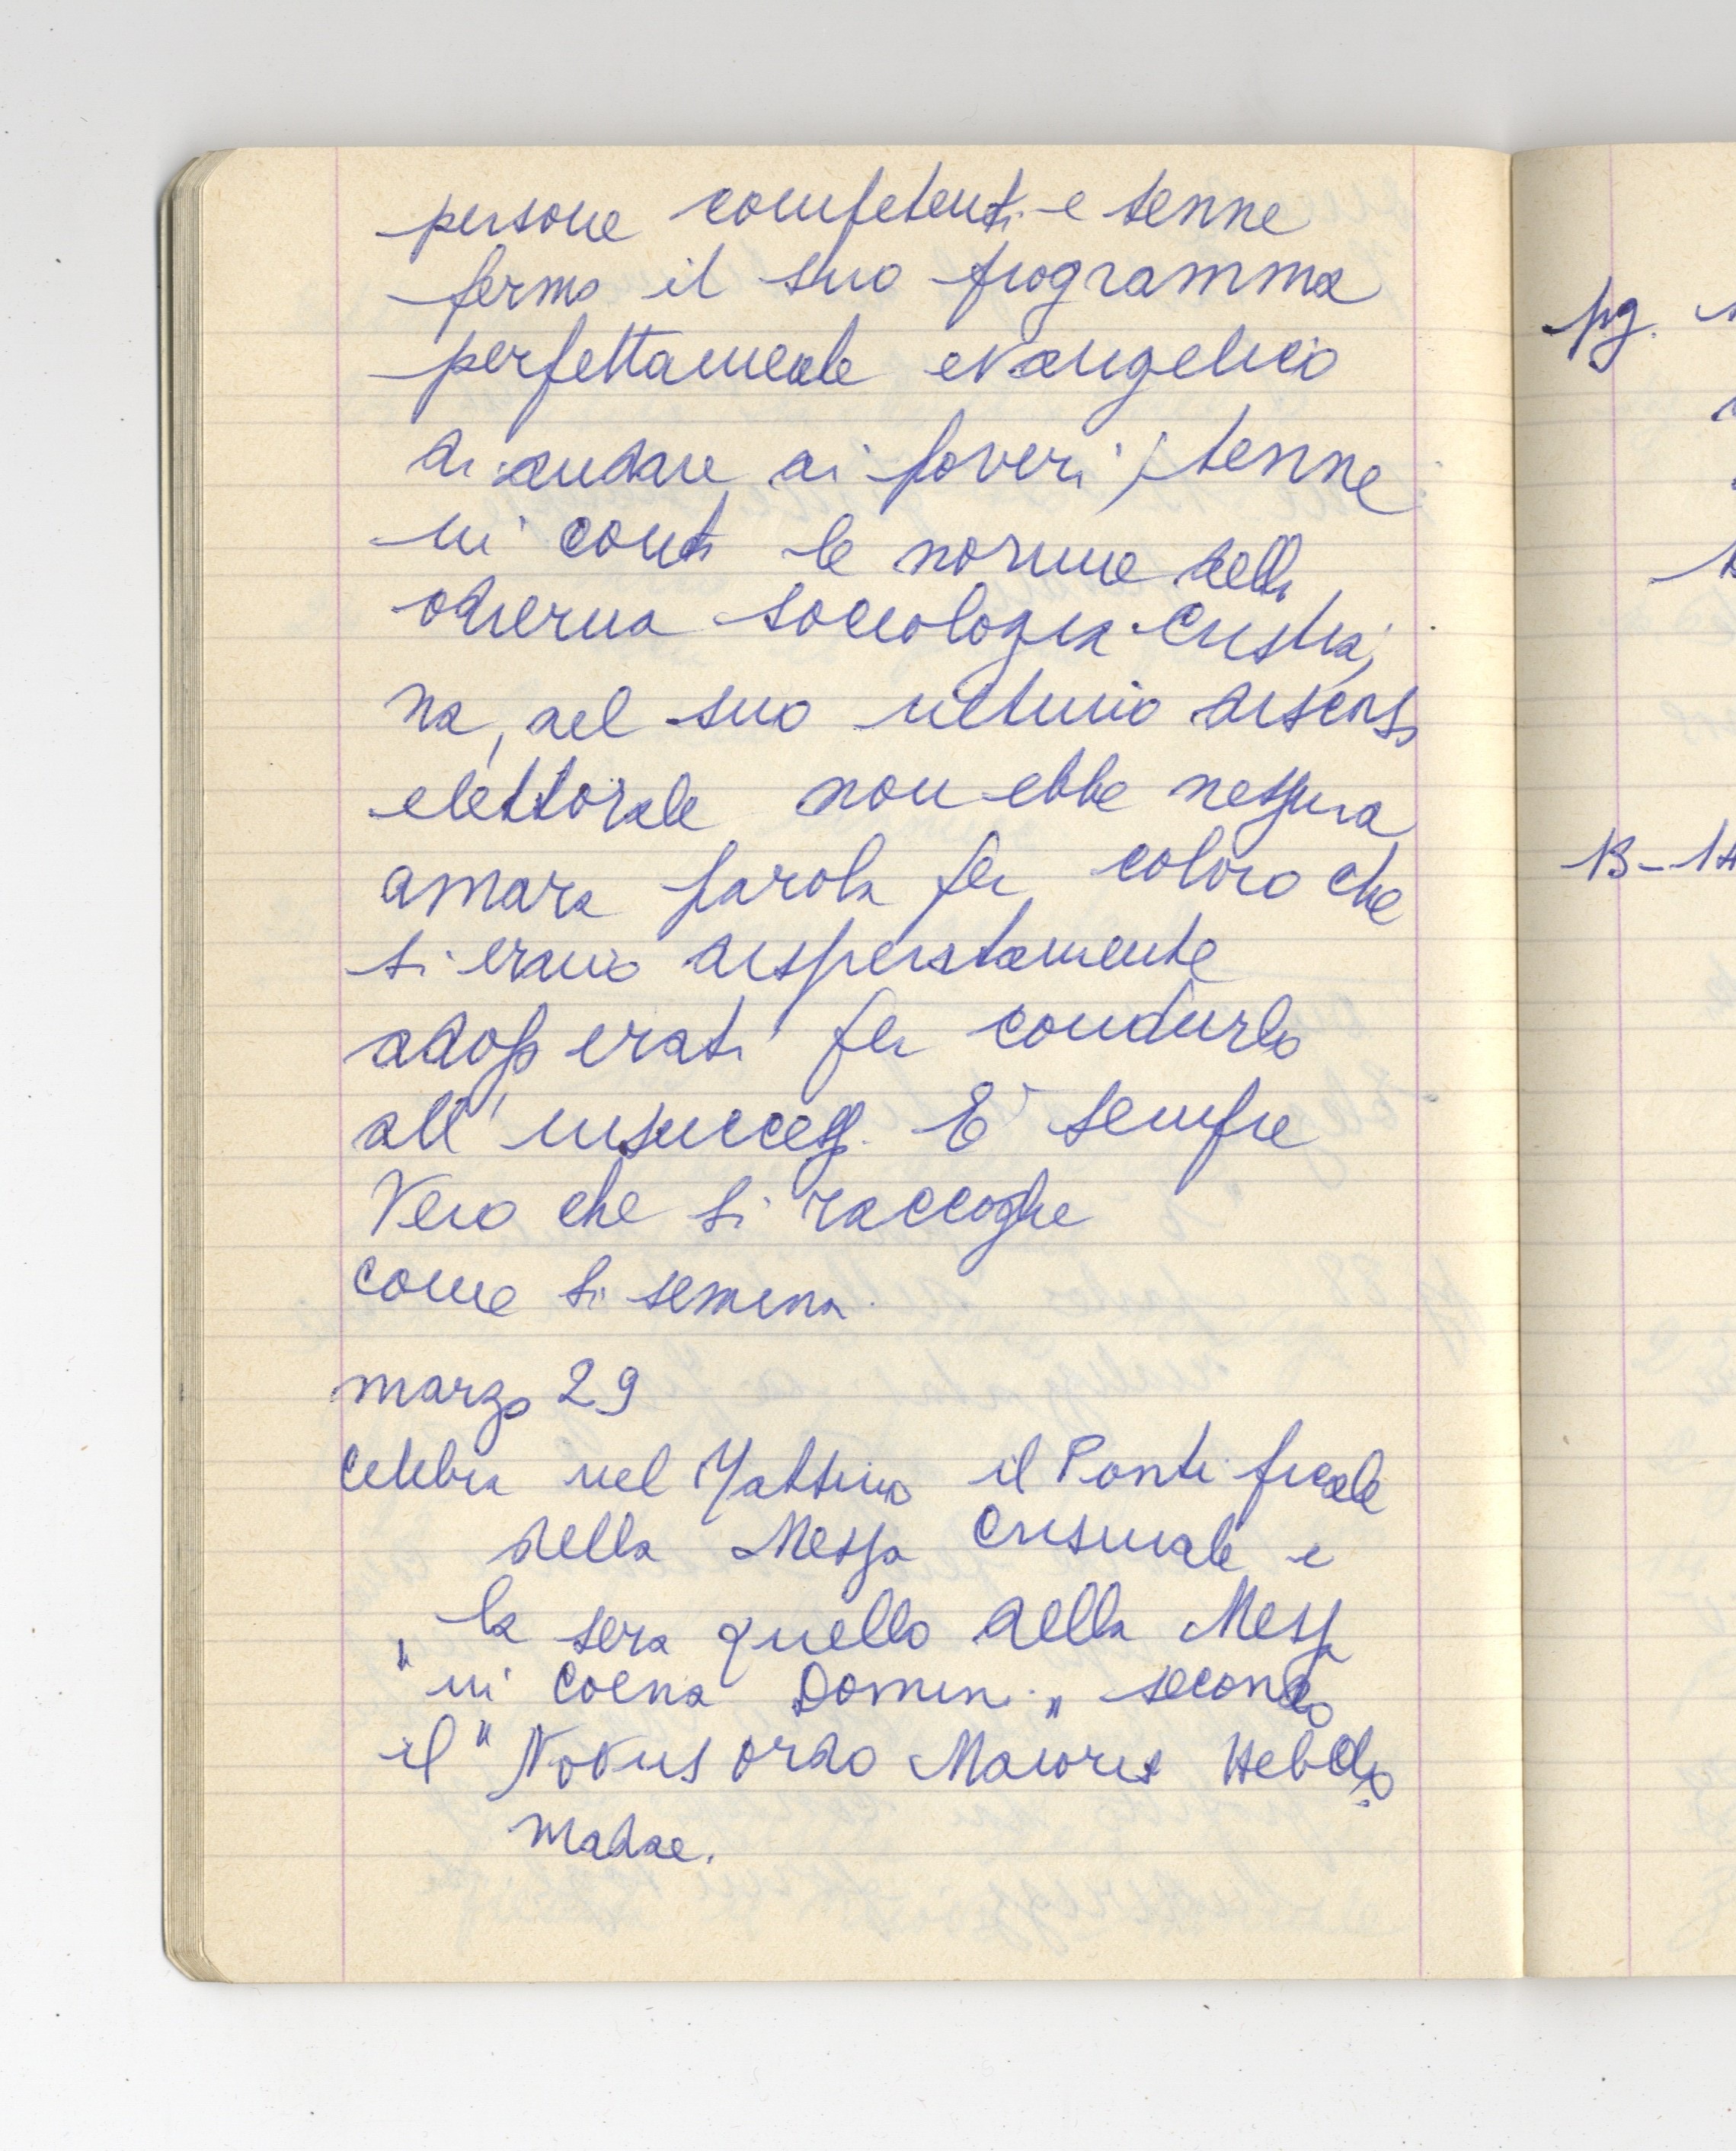 persone competenti e tenne
fermo il suo programma
perfettamente evangelico
di andare ai poveri; tenne
in conto le norme della
odierna sociologia cristia,
na, nel suo ultimo discorso
elettorale non ebbe nessuna
amara parola per coloro che
si erano disperatamente
adoperati per condurlo
all'insuccesso. E' sempre
vero che si raccoglie
come si semina.
marzo 29
Celebra nel Mattino il Pontificale
della Messa Crismale e
la sera quello della Messa
"in Coena Domini" secondo
il "Novus ordo Maioris Hebdo
madae.
pg.
13-14